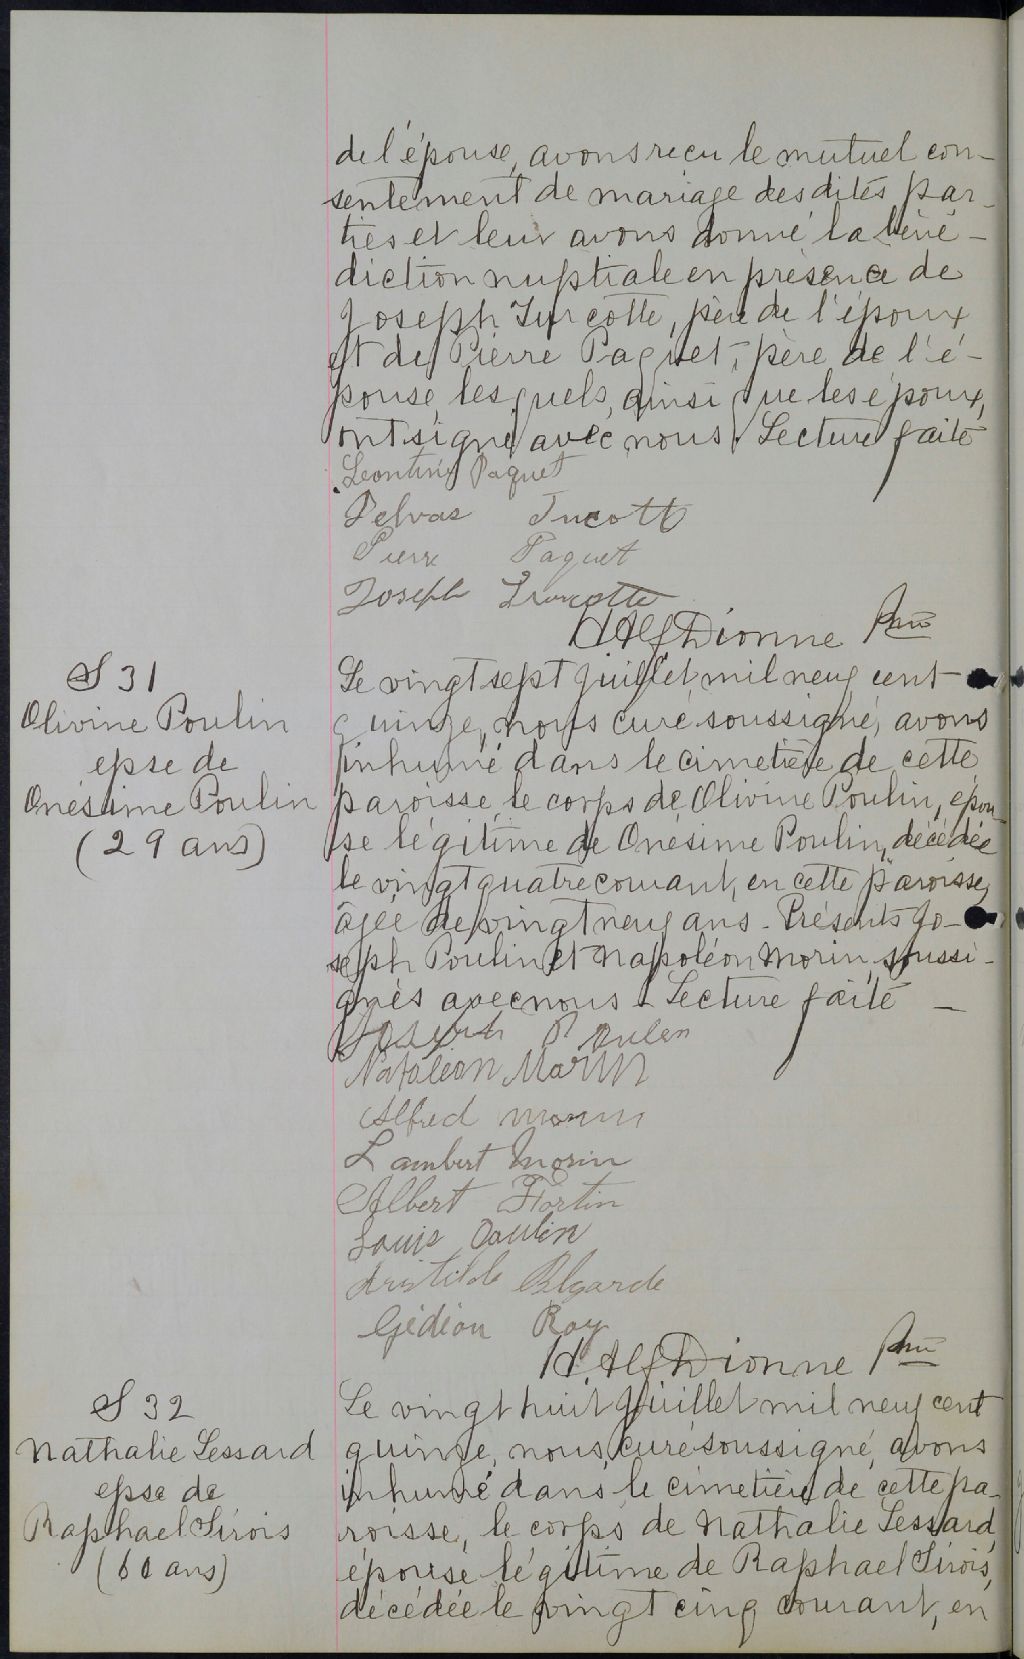 de l'épouse, avons reçu le mutuel con-
sentement de mariage des dites par-
ties et leur avons donné la béné-
diction nuptiale en présence de
Joseph Turcotte, père de l'époux
et de Pierre Paquet, père de l'é-
pouse, lesquels, ainsi que les époux,
ont signé avec nous. Lecture faite
Leontine Paquet
Delvas Turcott
Pierre Paquet
Joseph Turcotte
H. Alf Dionne Ptre
S 31
Olivine Poulin
epse de
Onésime Poulin
(29 ans)
Le vingt sept juillet mil neuf cent
quinze, nous curé soussigné, avons
inhumé dans le cimetière de cette
paroisse, le corps de Olivine Poulin, épou-
se légitime de Onésime Poulin, décédée
le vingt quatre courant, en cette paroisse,
âgée de vingt neuf ans. Présents Jo-
seph Poulin et Napoléon Morin, soussi-
gnés avec nous. Lecture faite
Joseph Poulen
Napoleon Morin
Alfred Morin
Lambert Morin
Albert Fortin
Louis Poulin
Aristilde
Gédéon Roy
H. Alf Dionne Ptre
S 32
Nathalie Lessard
epse de
Raphael Sirois
(60 ans)
Le vingt huit juillet mil neuf cent
quinze, nous, curé soussigné, avons
inhumé dans le cimetière de cette pa-
roisse, le corps de Nathalie Lessard,
épouse légitime de Raphael Sirois,
décédée le vingt cinq courant, en